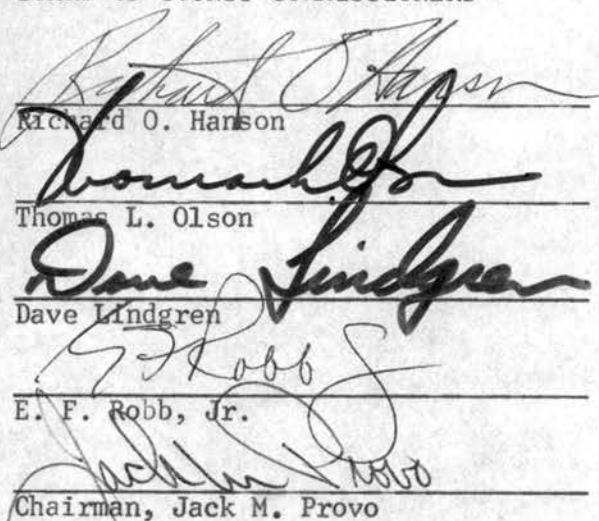 Richard O Hanson
Richard O. Hanson
Thomas L Olson
Thomas L. Olson
Dave Lindgren
Dave Lindgren
E F Robb Jr
E. F. Robb, Jr.
Jack M Provo
Chairman, Jack M. Provo